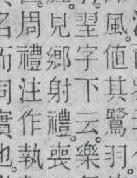 風。値其鷺羽
翣字下云。樂
見鄉射禮。喪
周禮注作執
名而同實也。